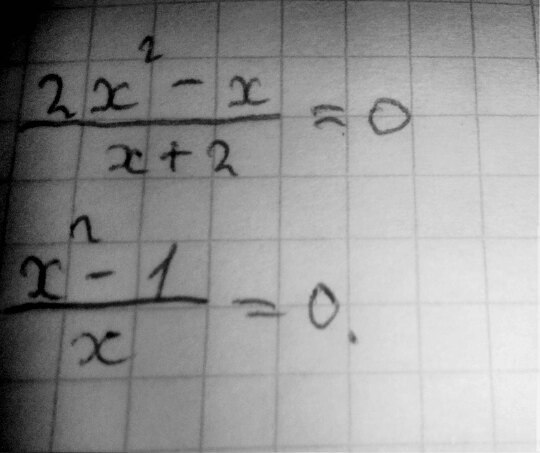 (2x² - x)/(x + 2) = 0
(x² - 1)/x = 0.